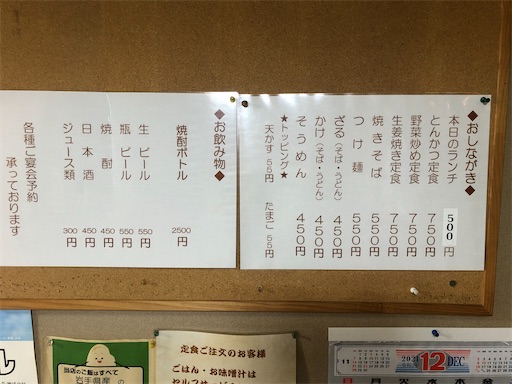 ◆おしながき◆
本日のランチ 500円
とんかつ定食 750円
野菜炒め定食 750円
生姜焼き定食 750円
焼きそば 550円
つけ麺 550円
ざる(そば・うどん) 450円
かけ(そば・うどん) 450円
そうめん 450円
★トッピング★
天かす 55円 たまご 55円
◆お飲み物◆
焼酎ボトル 2500円
生ビール 550円
瓶ビール 550円
焼酎 450円
日本酒 450円
ジュース類 300円
各種ご宴会予約
承っております
当店のご飯はすべて
岩手県産の
定食ご注文のお客様
ごはん・お味噌汁は
11
2021 12 DEC